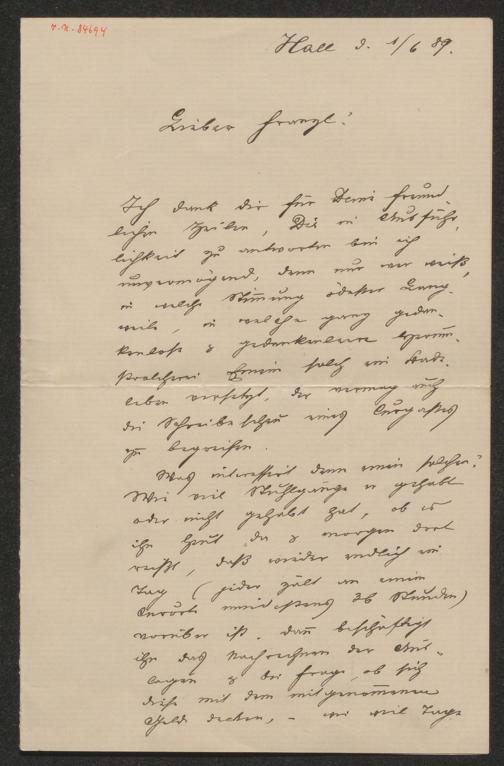 7. N. 84694
Hall d. 1/6 89.
Lieber Franzl!
Ich dank dir für Deine freund-
lichen Zeilen, Dir in Ausführ-
lichkeit zu antworten bin ich
unvermögend, denn nur wer weiß,
in welche Stimmung ödester Lang-
weile, in welche ganz gedan-
kenlose & gedankenleere
Einen solch ein Bade-
leben versetzt, der vermag auch
die Schreibescheu eines Curgastes
zu begreifen.
Was interessirt denn einen solchen?
Wie viel Stuhlgänge er gehabt
oder nicht gehabt hat, ob es
ihn heut da & morgen dort
reißt, daß wieder endlich ein
Tag (jeder zält an einem
Curorte mindestens 36 Stunden)
vorüber ist. Dann beschäftigt
ihn das Nachrechnen der Aus-
lagen & die Frage, ob sich
diese mit dem mitgenommenen
Gelde decken, – wie viel Tage